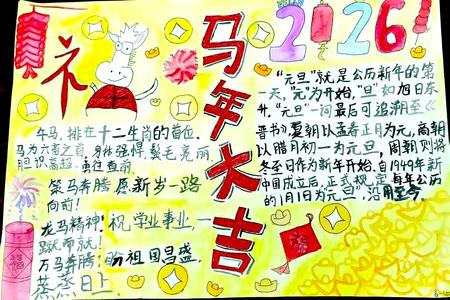 马年大吉
2026
礻
午马,排在十二生肖的首位,
马为六畜之首,身体强悍,鬃毛亮丽,
胆识高超,勇往直前。
策马奔腾愿新岁一路
向前!
龙马精神!祝学业事业,一
蹴而就!
万马奔腾!盼祖国昌盛,
蒸蒸日上
“元旦”就是公历新年的第
一天,“元”为开始,“旦”如旭日东
升。“元旦”一词最后可追溯至《
晋书》,夏朝以孟春正月为元,商朝
以腊月初一为元旦,周朝则将
冬至日作为新年开始。自1949年新
中国成立后,正式规定每年公历
的1月1日为元旦”,沿用至今。